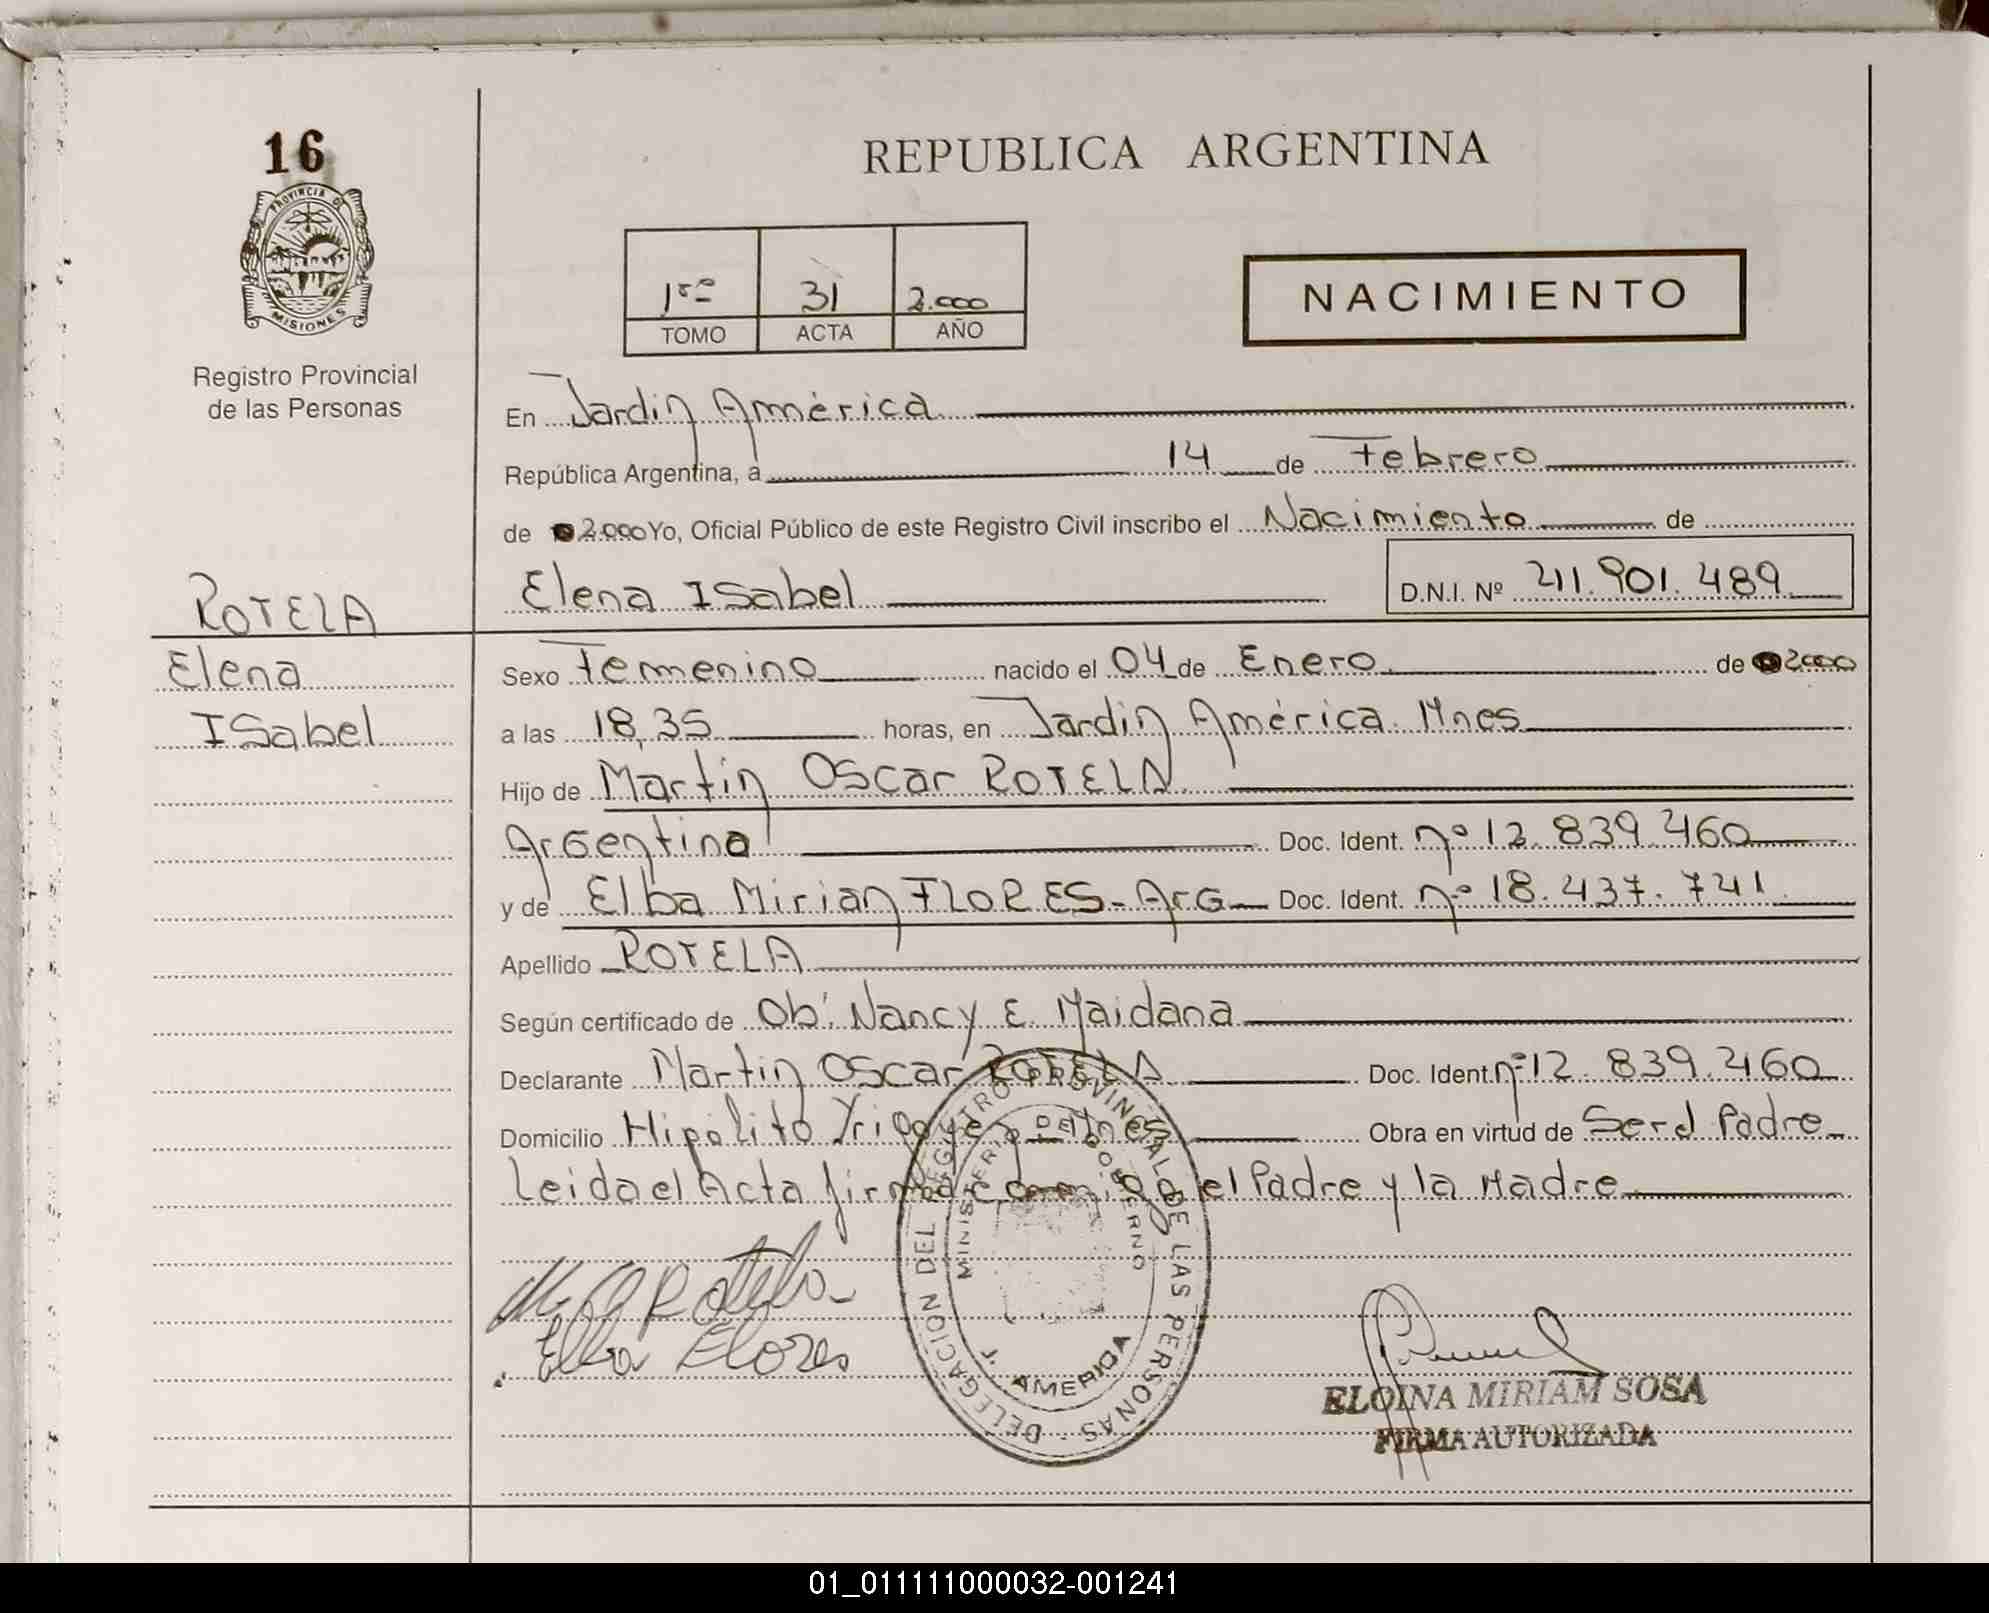 16
PROVINCIA DE
MISIONES
Registro Provincial
de las Personas
REPUBLICA ARGENTINA
1ro 31 2.000
TOMO ACTA AÑO
NACIMIENTO
En Jardin América
República Argentina, a 14 de Febrero
de 2.000 Yo, Oficial Público de este Registro Civil inscribo el Nacimiento de
Elena ISabel D.N.I. Nº 41.901.489
ROTELA
Elena
ISabel
Sexo Femenino nacido el 04 de Enero de 2000
a las 18,35 horas, en Jardin América. Mnes
Hijo de Martin Oscar ROTELA
Argentino Doc. Ident. nº 12.839.460
y de Elba Mirian FLORES-Arg Doc. Ident. nº 18.437.741
Apellido ROTELA
Según certificado de Ob: Nancy E. Maidana
Declarante Martin Oscar ROTELA Doc. Ident. nº 12.839.460
Domicilio Hipólito Yrigoyen Mnes Obra en virtud de Ser el Padre
Leida el Acta firman conmigo el Padre y la Madre
M. O. Rotela
Elba Flores
DELEGACION DEL REGISTRO PROVINCIAL DE LAS PERSONAS
MINISTERIO DE GOBIERNO
J. AMERICA
ELOINA MIRIAM SOSA
FIRMA AUTORIZADA
01_011111000032-001241